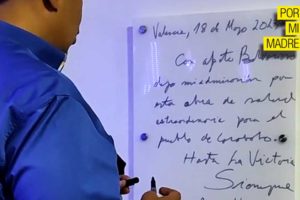 POR
MI
MADRE
Valencia, 18 de Mayo 20
Con afecto
dejo mi admiración por
esta obra de salud
extraordinaria para el
pueblo de Carabobo.
Hasta La Victoria
Siempre